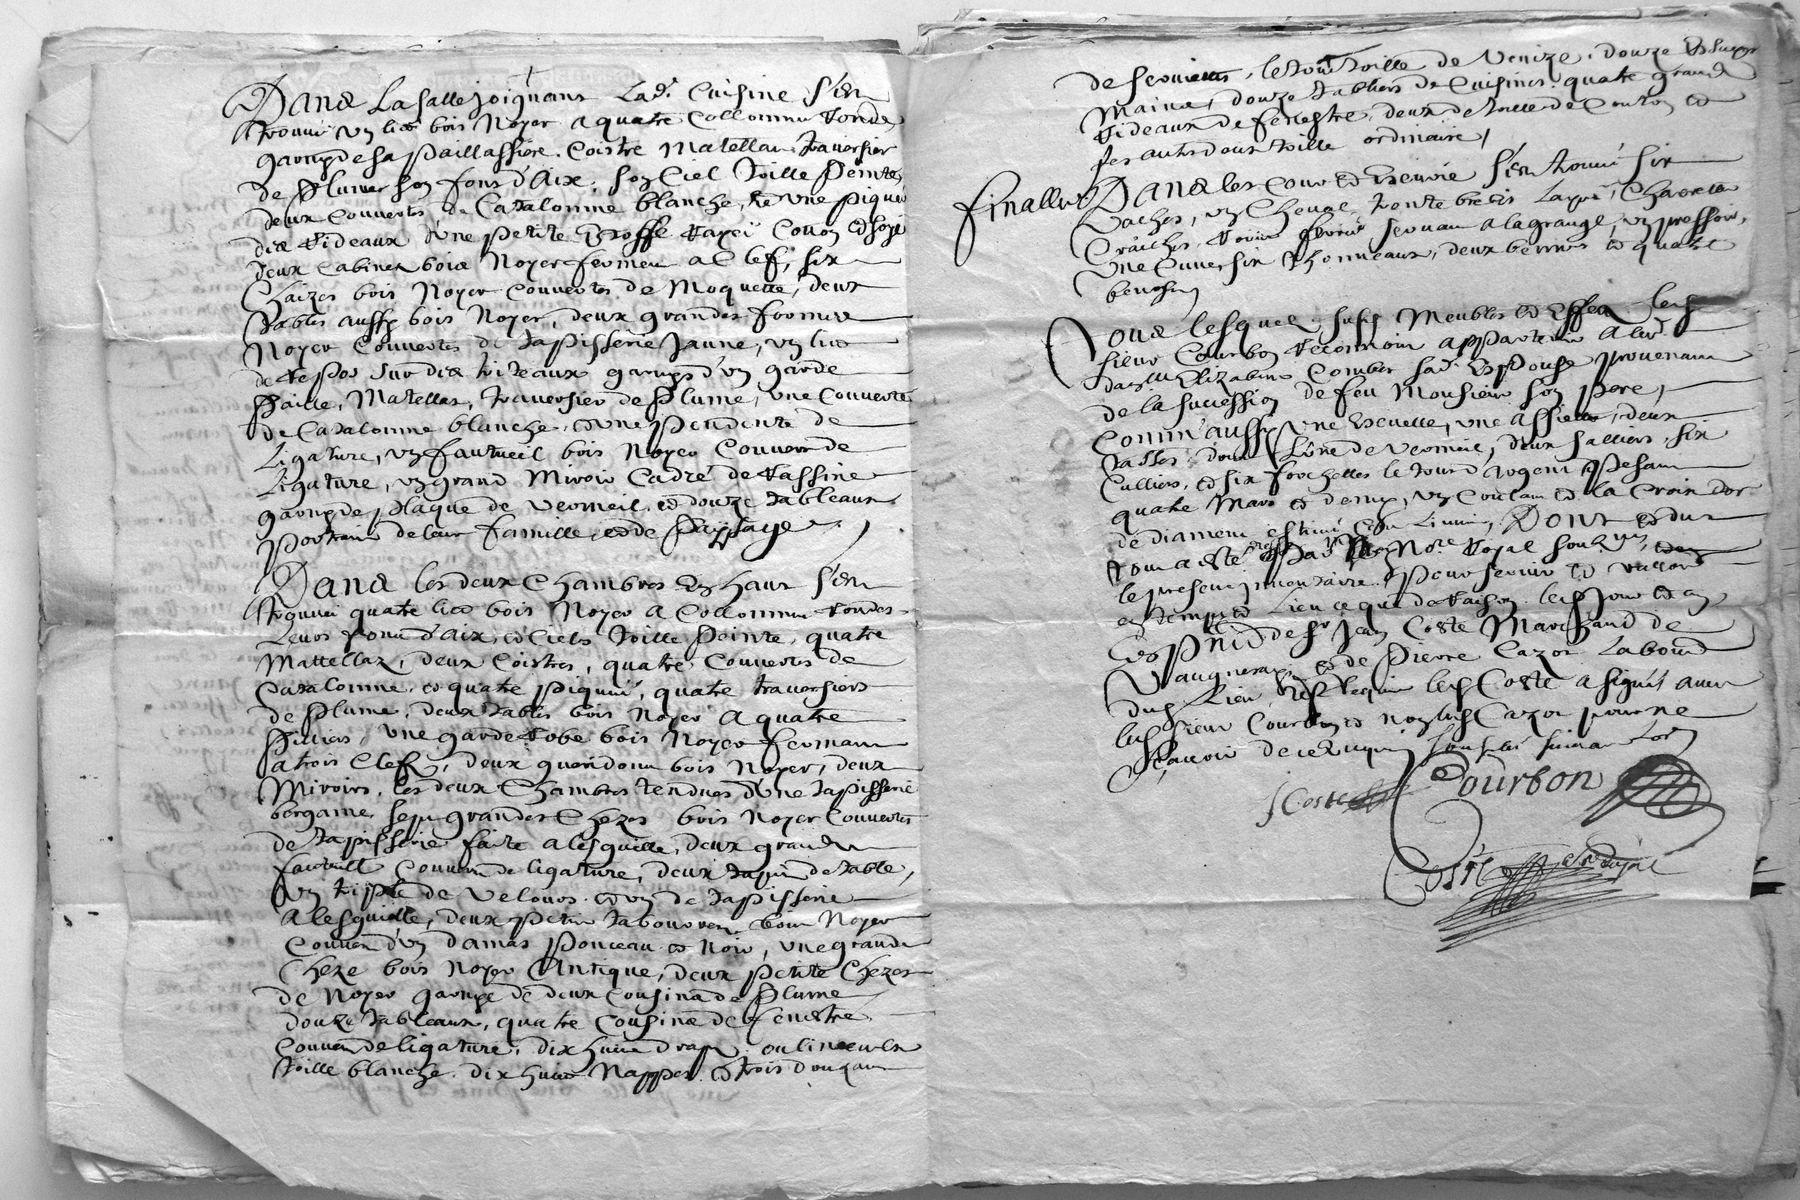 Dans La salle joignant Lad. Cuisine s'est
trouvé un lict bois Noyer a quatre Collonnes rondes
garny de sa paillassiere, Coistre Matellas, traversier
de plume son fons d'Aix, son Ciel toille peinte
deux couvertes de Catalonne blanche, et une piquee
dix rideaux d'une petite Estoffe rayée Cotton et soye
deux Cabinets bois Noyer fermens a Clef, six
Chaizes bois Noyer Couvertes de Moquette, deux
tables aussy bois Noyer, deux grandes formes
Noyer Couvertes de tapisserie Jaune, un lict
de repos sur dix trizeaux garnys d'un garde
paille, Matellas, traversier de plume, une Couverte
de Catalonne blanche, et une pendente de
Ligature, un fautueil bois Noyer Couvert de
Ligature, un grand Miroir Cadré de rassine
garny de plaque de Vermeil, et douze tableaux
portrait de leur famille, et de païsage
Dans les deux Chambres en haut s'est
trouvé quatre licts bois Noyer a Collonnes rondes
Leurs fons d'Aix, et Ciels toille peinte, quatre
Mattellaz, deux Coistres, quatre Couvertes de
Catalonne, et quatre piquees, quatre traversiers
de plume, deux tables bois Noyer a quatre
pilliers, une garde robe bois Noyer fermant
a trois Clefs, deux guéridons bois Noyer, deux
Miroirs, les deux Chambres tendues d'une tapisserie
bergame, sept grandes Chezes bois Noyer Couvertes
de tapisserie faite a lesguille, deux grands
fauteuils Couverts de ligature, deux tapis de table,
un triple de Velours et un de tapisserie
a lesguille, deux petits tabourets bois Noyer
Couvert d'un damas ponceau et Noir, une grande
Cheze bois Noyer Antique, deux petite Chezes
de Noyer garnye de deux Cousins de plume
douze tableaux, quatre Cousins de fenestre
Couvert de ligature, dix huict draps ou linceuls
toille blanche, dix huict Nappes et trois douzaines
de serviettes, le tout toille de Venize, douze Essuye
Mains, douze tabliers de Cuisine, quatre grands
rideaux de fenestre, deux de toille de Coton et
les autres deux toille ordinaire,
finallement Dans les cour et Escurie s'est trouvé six
Vaches, un Cheval, trente brebis
Crâiches servant a la grange, un pressoir,
une Cuve, six thonneaux, deux bennes et quatre
benosts
Tous lesquels susd. Meubles et Effets led.
sieur Courbon reconnoit appartenir a lad.
dam.lle Elizabeth Combet sad. Espouse provenant
de la succession de feu Monsieur son pere,
Comm'aussy une Escuelle, une assiette, deux
tasses, deux salliers, six
Culliers, et six forchettes le tout d'argent pesant
quatre Marc et demy, un Coulant et la Croix d'or
de diament Dont et du
tout a esté dressé par Nore. royal soub.né
le present inventaire pour servir et valloir
en temps et Lieu ce que de raison led. jour et an
En p.nce de sr Jean Coste Marchand de
Vaugneray et de Pierre Cazot Laboureur
dud. Lieu, led. Coste a signé avec
led. sieur Courbon et non led. Cazot pour ne
sçavoir de ce enquis
J Coste Courbon
Coste